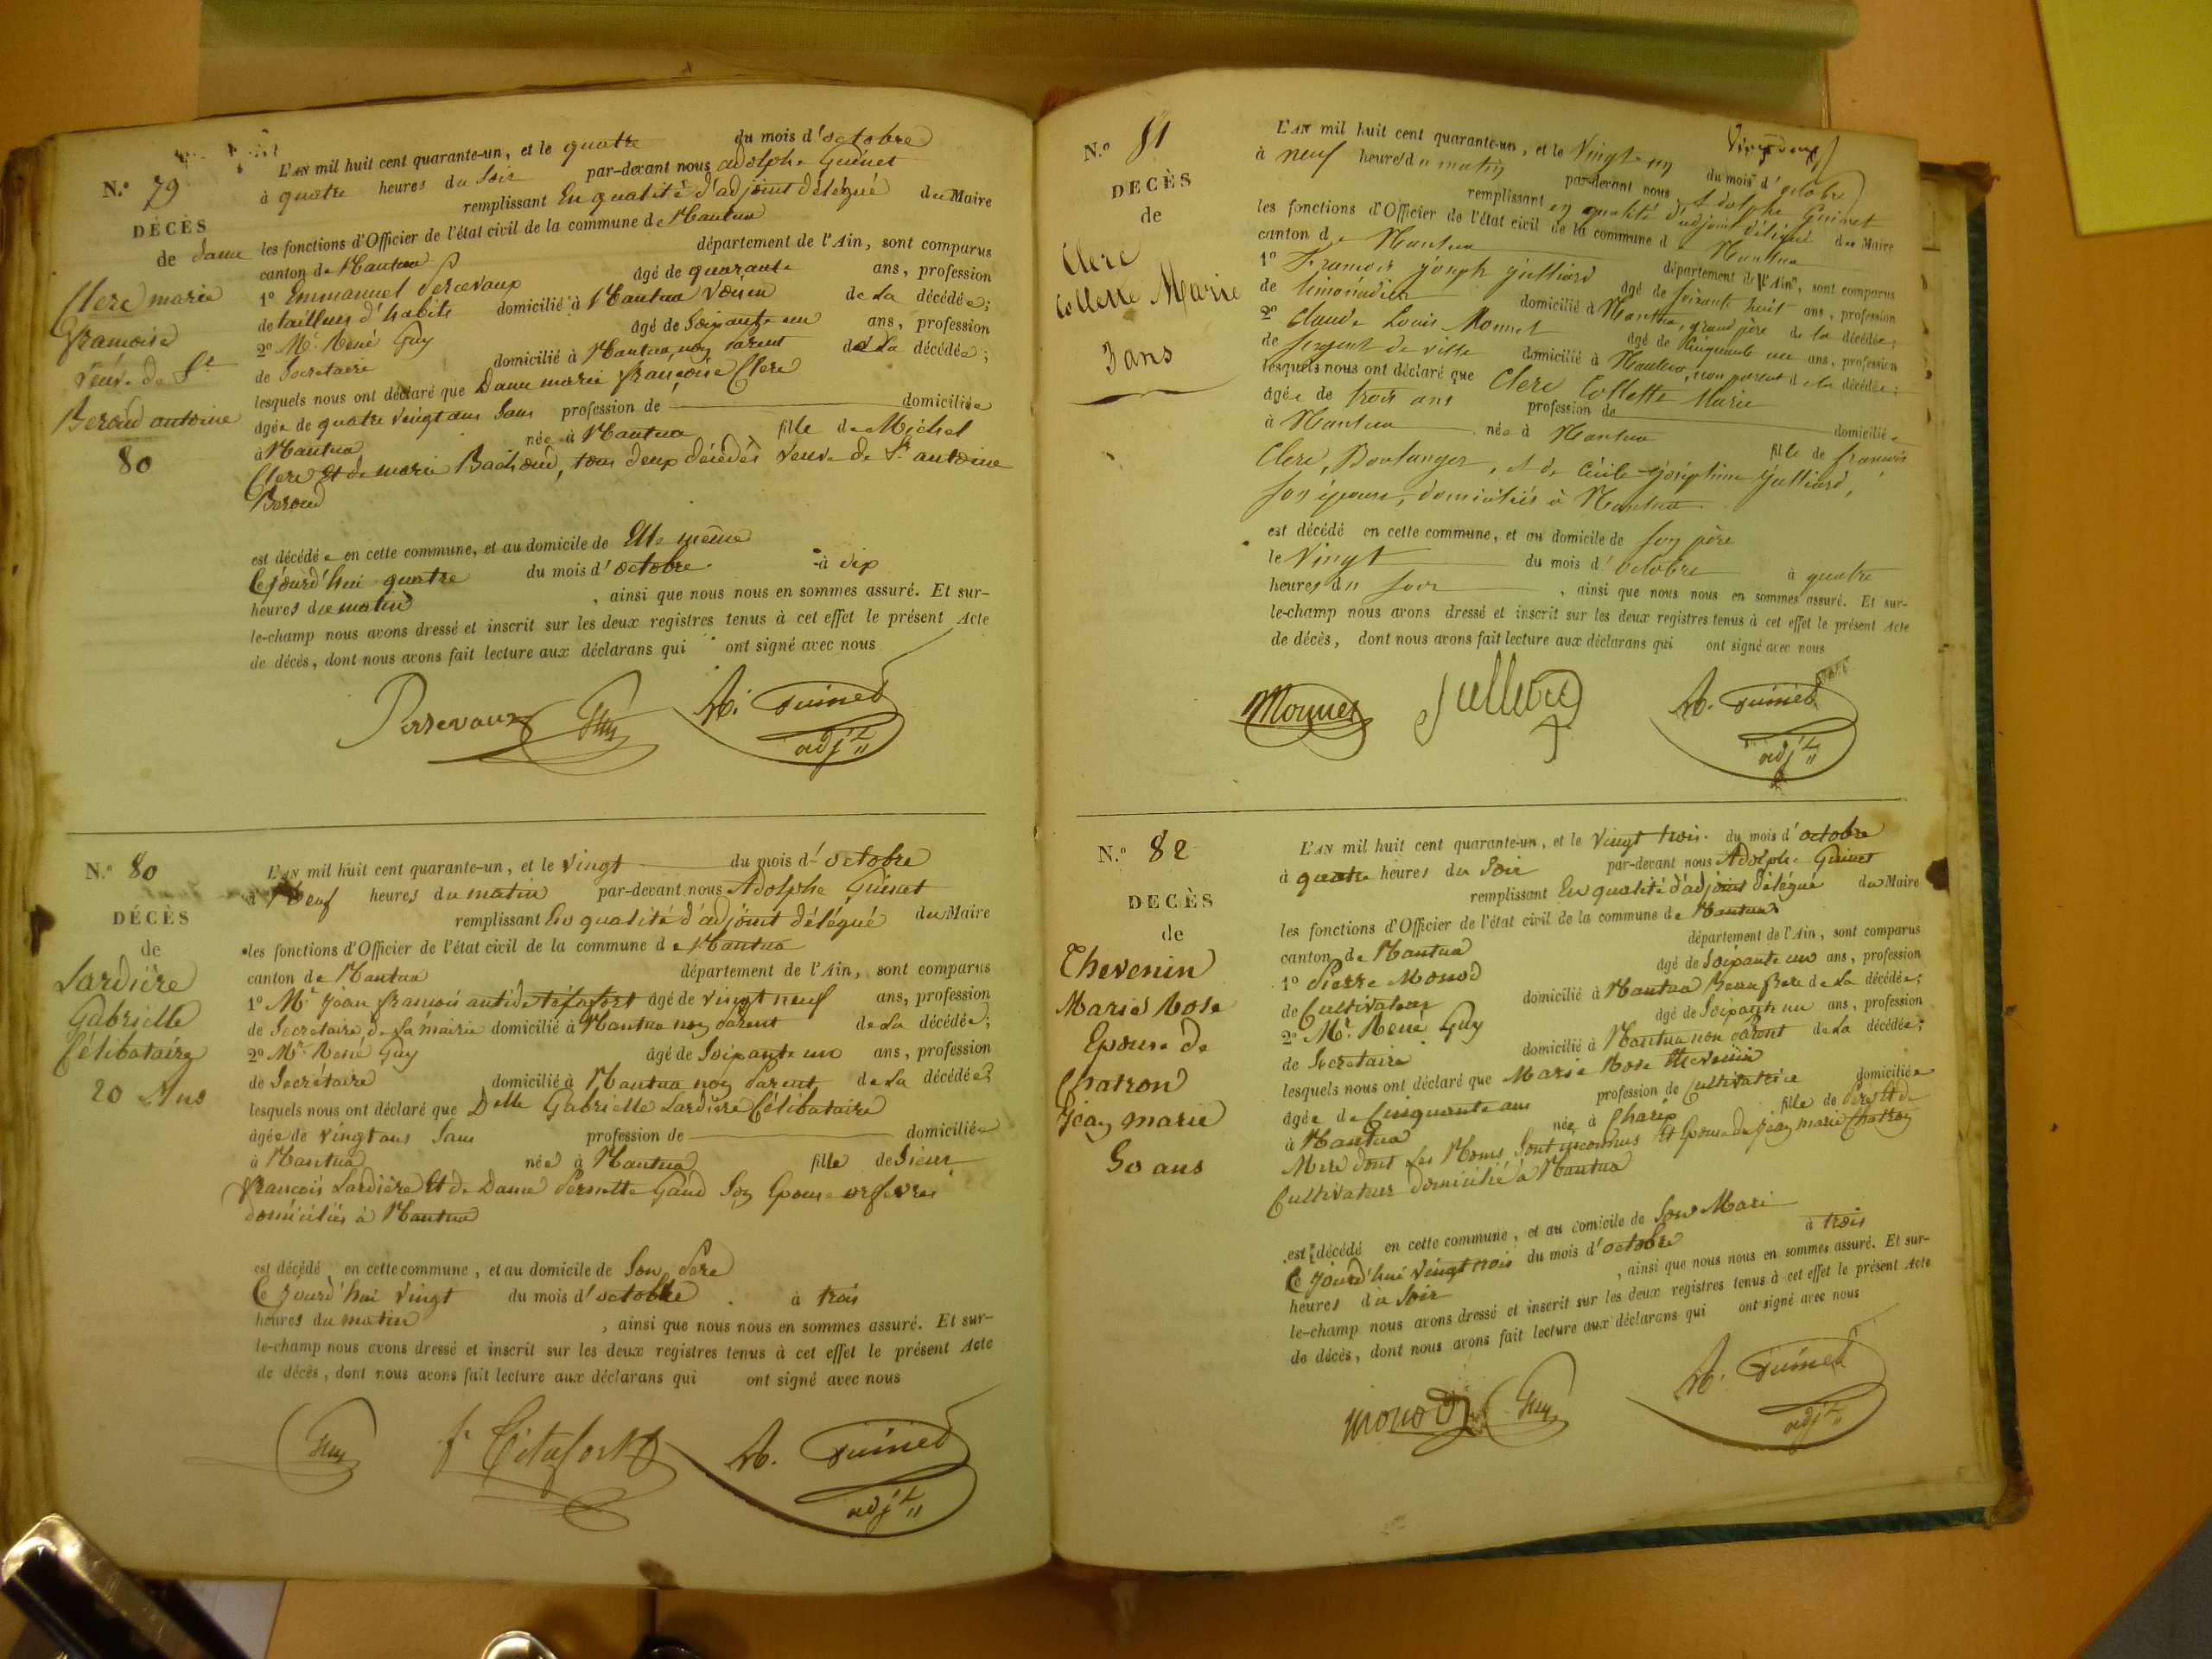 N.º 79
DÉCÈS
de Dame
Clerc marie
françoise
veuve de St
Beroud antoine
80
L'AN mil huit cent quarante-un, et le quatre du mois d'octobre
à quatre heures du Soir par-devant nous adolphe Guinet
remplissant En qualité d'adjoint délégué du Maire
les fonctions d'Officier de l'état civil de la commune de Nantua
canton de Nantua département de l'Ain, sont comparus
1º Emmanuel Persevaux âgé de quarante ans, profession
de tailleur d'habits domicilié à Nantua Voisin de La décédée;
2º Mr. René Guy âgé de Soixante un ans, profession
de Secretaire domicilié à Nantua, non parent de La décédée;
lesquels nous ont déclaré que Dame marie françoise Clerc
âgée de quatre vingt ans Sans profession de domiciliée
à Nantua née à Nantua fille de Michel
Clerc Et de marie Bachoud, tous deux décédés veuve de St. antoine
Beroud
est décédée en cette commune, et au domicile de Elle même
Cejourd'hui quatre du mois d'octobre à dix
heures du matin , ainsi que nous nous en sommes assuré. Et sur-
le-champ nous avons dressé et inscrit sur les deux registres tenus à cet effet le présent Acte
de décès, dont nous avons fait lecture aux déclarans qui ont signé avec nous
Persevaux Guy A. Guinet
adjt
N.º 80
DÉCÈS
de
Lardière
Gabrielle
Célibataire
20 Ans
L'AN mil huit cent quarante-un, et le vingt du mois d'octobre
à Neuf heures du matin par-devant nous Adolphe Guinet
remplissant En qualité d'adjoint délégué du Maire
les fonctions d'Officier de l'état civil de la commune de Nantua
canton de Nantua département de l'Ain, sont comparus
1º Mr. jean françois antide tétafort âgé de vingt neuf ans, profession
de Secretaire de La mairie domicilié à Nantua non Parent de La décédée;
2º Mr. René Guy âgé de Soixante un ans, profession
de Secrétaire domicilié à Nantua non Parent de La décédée;
lesquels nous ont déclaré que Delle Gabrielle Lardière Célibataire
âgée de vingt ans Sans profession de domiciliée
à Nantua née à Nantua fille de Sieur
françois Lardière Et de Dame Pernette Gaud Son Epouse orfevres
domiciliés à Nantua
est décédé en cette commune, et au domicile de Son Père
Cejourd'hui vingt du mois d'octobre à trois
heures du matin , ainsi que nous nous en sommes assuré. Et sur-
le-champ nous avons dressé et inscrit sur les deux registres tenus à cet effet le présent Acte
de décès, dont nous avons fait lecture aux déclarans qui ont signé avec nous
Guy f. Tétafort A. Guinet
adjt
N.º 81
DECÈS
de
Clerc
Collette Marie
3 ans
Vingt deux
L'AN mil huit cent quarante-un, et le Vingt un du mois d'octobre
à neuf heures du matin par-devant nous Adolphe Guinet
remplissant en qualité d'adjoint délégué du Maire
les fonctions d'Officier de l'état civil de la commune de Nantua
canton de Nantua département de l'Ain, sont comparus
1º francois joseph julliard âgé de soixante huit ans, profession
de limonadier domicilié à Nantua, grand père de la décédée;
2º Claude Louis Monnet âgé de cinquante un ans, profession
de sergent de ville domicilié à Nantua, non parent de la décédée;
lesquels nous ont déclaré que Clerc Collette Marie
âgée de trois ans profession de domiciliée
à Nantua née à Nantua fille de francois
Clerc, Boulanger, et de Cécile joséphine julliard,
son épouse, domiciliés à Nantua.
est décédé en cette commune, et au domicile de son père
le Vingt du mois d'octobre à quatre
heures du soir , ainsi que nous nous en sommes assuré. Et sur-
le-champ nous avons dressé et inscrit sur les deux registres tenus à cet effet le présent Acte
de décès, dont nous avons fait lecture aux déclarans qui ont signé avec nous
Monnet julliard A. Guinet
adjt
N.º 82
DECÈS
de
Thevenin
Marie Rose
Epouse de
Chatron
Jean marie
50 ans
L'AN mil huit cent quarante-un, et le vingt trois du mois d'octobre
à quatre heures du Soir par-devant nous Adolphe Guinet
remplissant En qualité d'adjoint délégué du Maire
les fonctions d'Officier de l'état civil de la commune de Nantua
canton de Nantua département de l'Ain, sont comparus
1º Pierre Monod âgé de Soixante un ans, profession
de Cultivateur domicilié à Nantua Beau frere de La décédée;
2º Mr. René Guy âgé de Soixante un ans, profession
de Secretaire domicilié à Nantua non Parent de La décédée;
lesquels nous ont déclaré que Marie Rose Thevenin
âgée de Cinquante ans profession de Cultivatrice domiciliée
à Nantua née à Charix fille de Père Et de
Mere dont Les Noms Sont inconnus Et Epouse de jean marie Chatron
Cultivateur domicilié à Nantua
est décédé en cette commune, et au domicile de Son Mari
Cejourd'hui vingt trois du mois d'octobre à trois
heures du Soir , ainsi que nous nous en sommes assuré. Et sur-
le-champ nous avons dressé et inscrit sur les deux registres tenus à cet effet le présent Acte
de décès, dont nous avons fait lecture aux déclarans qui ont signé avec nous
monod Guy A. Guinet
adjt